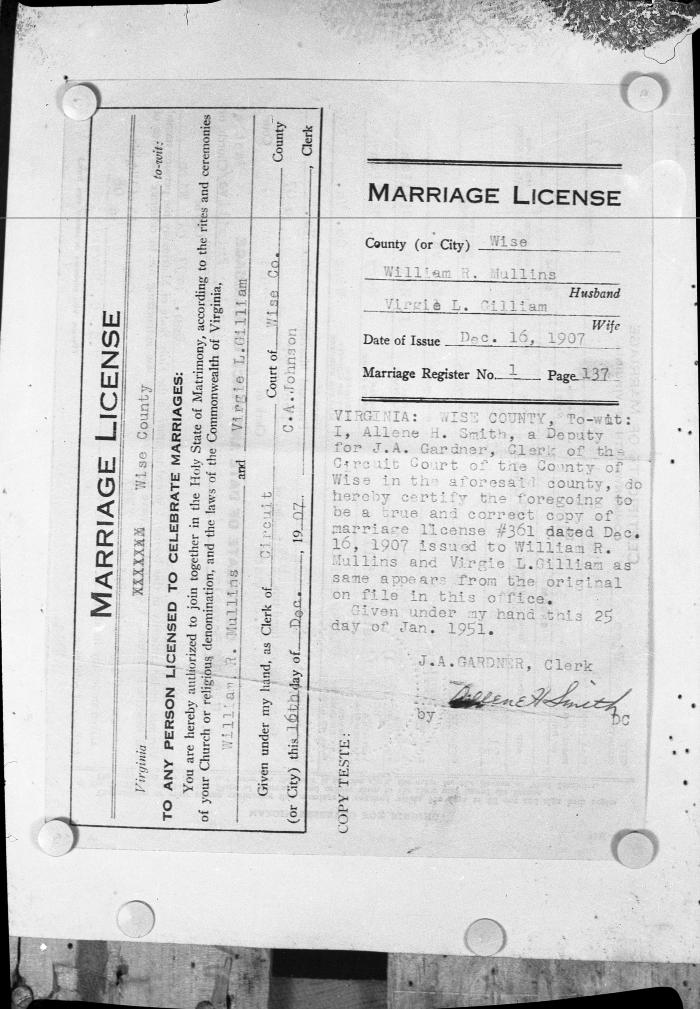 MARRIAGE LICENSE
Virginia XXXXXXX Wise County to-wit:
TO ANY PERSON LICENSED TO CELEBRATE MARRIAGES:
You are hereby authorized to join together in the Holy State of Matrimony, according to the rites and ceremonies
of your Church or religious denomination, and the laws of the Commonwealth of Virginia,
William R. Mullins and Virgie L.Gilliam
Given under my hand, as Clerk of Circuit Court of Wise Co. County
(or City) this 16th day of Dec., 1907. C.A.Johnson, Clerk
MARRIAGE LICENSE
County (or City) Wise
William R. Mullins
Husband
Virgie L. Gilliam
Wife
Date of Issue Dec. 16, 1907
Marriage Register No. 1 Page 137
VIRGINIA: WISE COUNTY, To-wit:
I, Allene H. Smith, a Deputy
for J.A. Gardner, Clerk of the
Circuit Court of the County of
Wise in the aforesaid county, do
hereby certify the foregoing to
be a true and correct copy of
marriage license #361 dated Dec.
16, 1907 issued to William R.
Mullins and Virgie L.Gilliam as
same appears from the original
on file in this office.
Given under my hand this 25
day of Jan. 1951.
J.A.GARDNER, Clerk
by Allene H Smith DC
COPY TESTE: